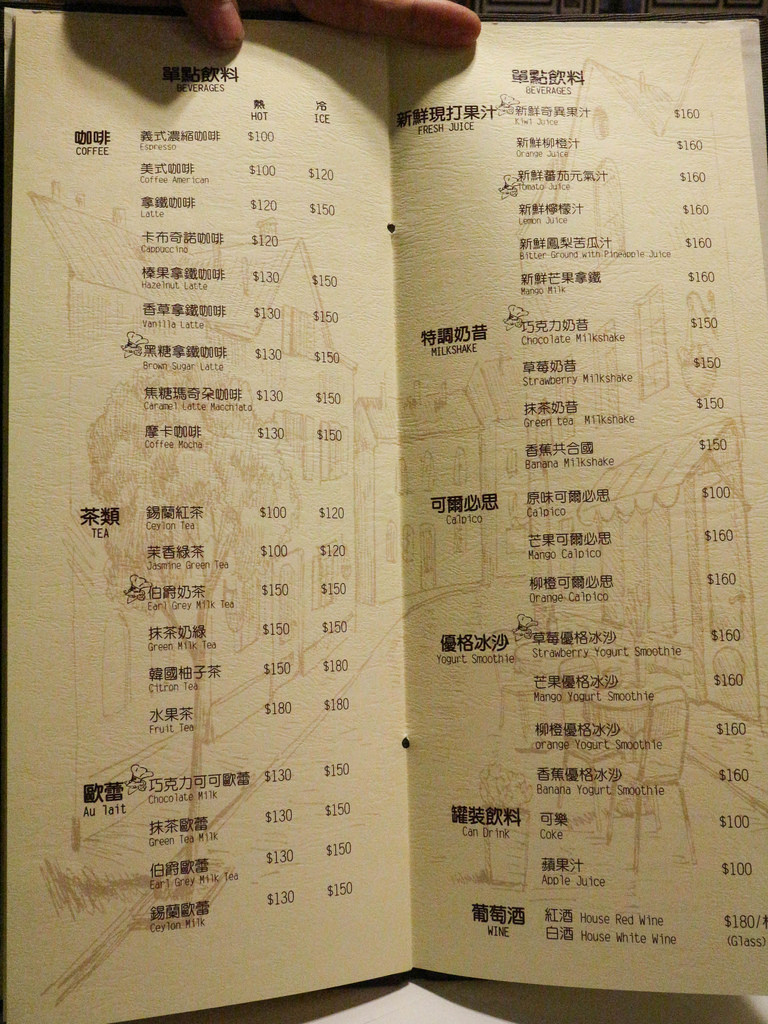 單點飲料
BEVERAGES
熱 冷
HOT ICE
咖啡
COFFEE
義式濃縮咖啡 $100
Espresso
美式咖啡 $100 $120
Coffee American
拿鐵咖啡 $120 $150
Latte
卡布奇諾咖啡 $120
Cappuccino
榛果拿鐵咖啡 $130 $150
Hazelnut Latte
香草拿鐵咖啡 $130 $150
Vanilla Latte
黑糖拿鐵咖啡 $130 $150
Brown Sugar Latte
焦糖瑪奇朵咖啡 $130 $150
Caramel Latte Macchiato
摩卡咖啡 $130 $150
Coffee Mocha
茶類
TEA
錫蘭紅茶 $100 $120
Ceylon Tea
茉香綠茶 $100 $120
Jasmine Green Tea
伯爵奶茶 $150 $150
Earl Grey Milk Tea
抹茶奶綠 $150 $150
Green Milk Tea
韓國柚子茶 $150 $180
Citron Tea
水果茶 $180 $180
Fruit Tea
歐蕾
Au lait
巧克力可可歐蕾 $130 $150
Chocolate Milk
抹茶歐蕾 $130 $150
Green Tea Milk
伯爵歐蕾 $130 $150
Earl Grey Milk Tea
錫蘭歐蕾 $130 $150
Ceylon Milk
單點飲料
BEVERAGES
新鮮現打果汁
FRESH JUICE
新鮮奇異果汁 $160
Kiwi Juice
新鮮柳橙汁 $160
Orange Juice
新鮮蕃茄元氣汁 $160
Tomato Juice
新鮮檸檬汁 $160
Lemon Juice
新鮮鳳梨苦瓜汁 $160
Bitter Ground with Pineapple Juice
新鮮芒果拿鐵 $160
Mango Milk
特調奶昔
MILKSHAKE
巧克力奶昔 $150
Chocolate Milkshake
草莓奶昔 $150
Strawberry Milkshake
抹茶奶昔 $150
Green tea Milkshake
香蕉共合國 $150
Banana Milkshake
可爾必思
Calpico
原味可爾必思 $100
Calpico
芒果可爾必思 $160
Mango Calpico
柳橙可爾必思 $160
Orange Calpico
優格冰沙
Yogurt Smoothie
草莓優格冰沙 $160
Strawberry Yogurt Smoothie
芒果優格冰沙 $160
Mango Yogurt Smoothie
柳橙優格冰沙 $160
orange Yogurt Smoothie
香蕉優格冰沙 $160
Banana Yogurt Smoothie
罐裝飲料
Can Drink
可樂 $100
Coke
蘋果汁 $100
Apple Juice
葡萄酒
WINE
紅酒 House Red Wine $180/
白酒 House White Wine (Glass)